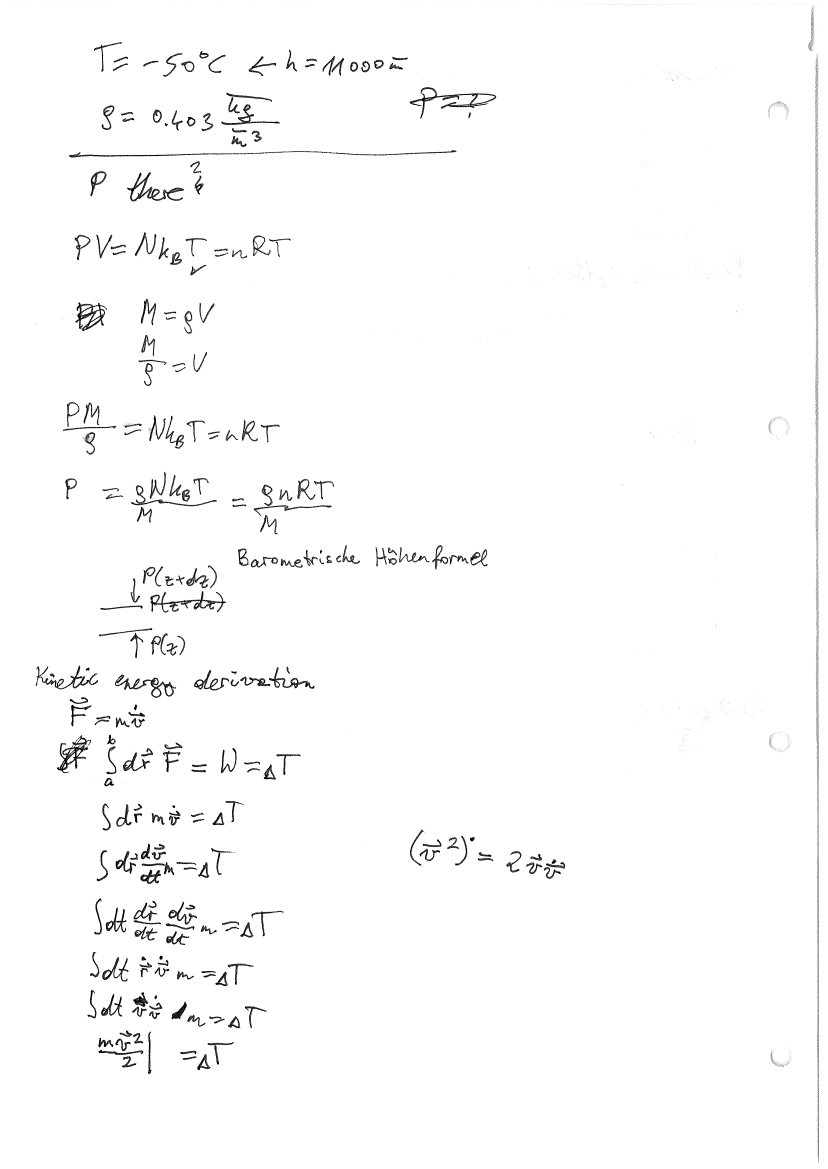 T = -50°C ← h = 11000 m
ρ = 0.403 kg/m³ P = ?
P there?
PV = Nk_BT = nRT
M = ρV
M/ρ = V
PM/ρ = Nk_BT = nRT
P = ρNk_BT/M = ρnRT/M
Barometrische Höhenformel
↓P(z+dz)
P(z+dz)
↑P(z)
Kinetic energy derivation
F⃗ = mv⃗̇
∫_a^b dr⃗ F⃗ = W = ΔT
∫dr⃗ mv⃗̇ = ΔT
∫dr⃗ dv⃗/dt m = ΔT (v⃗²)˙ = 2v⃗v⃗̇
∫dt dr⃗/dt dv⃗/dt m = ΔT
∫dt r⃗̇ v⃗̇ m = ΔT
∫dt v⃗v⃗̇ m = ΔT
mv⃗²/2 | = ΔT